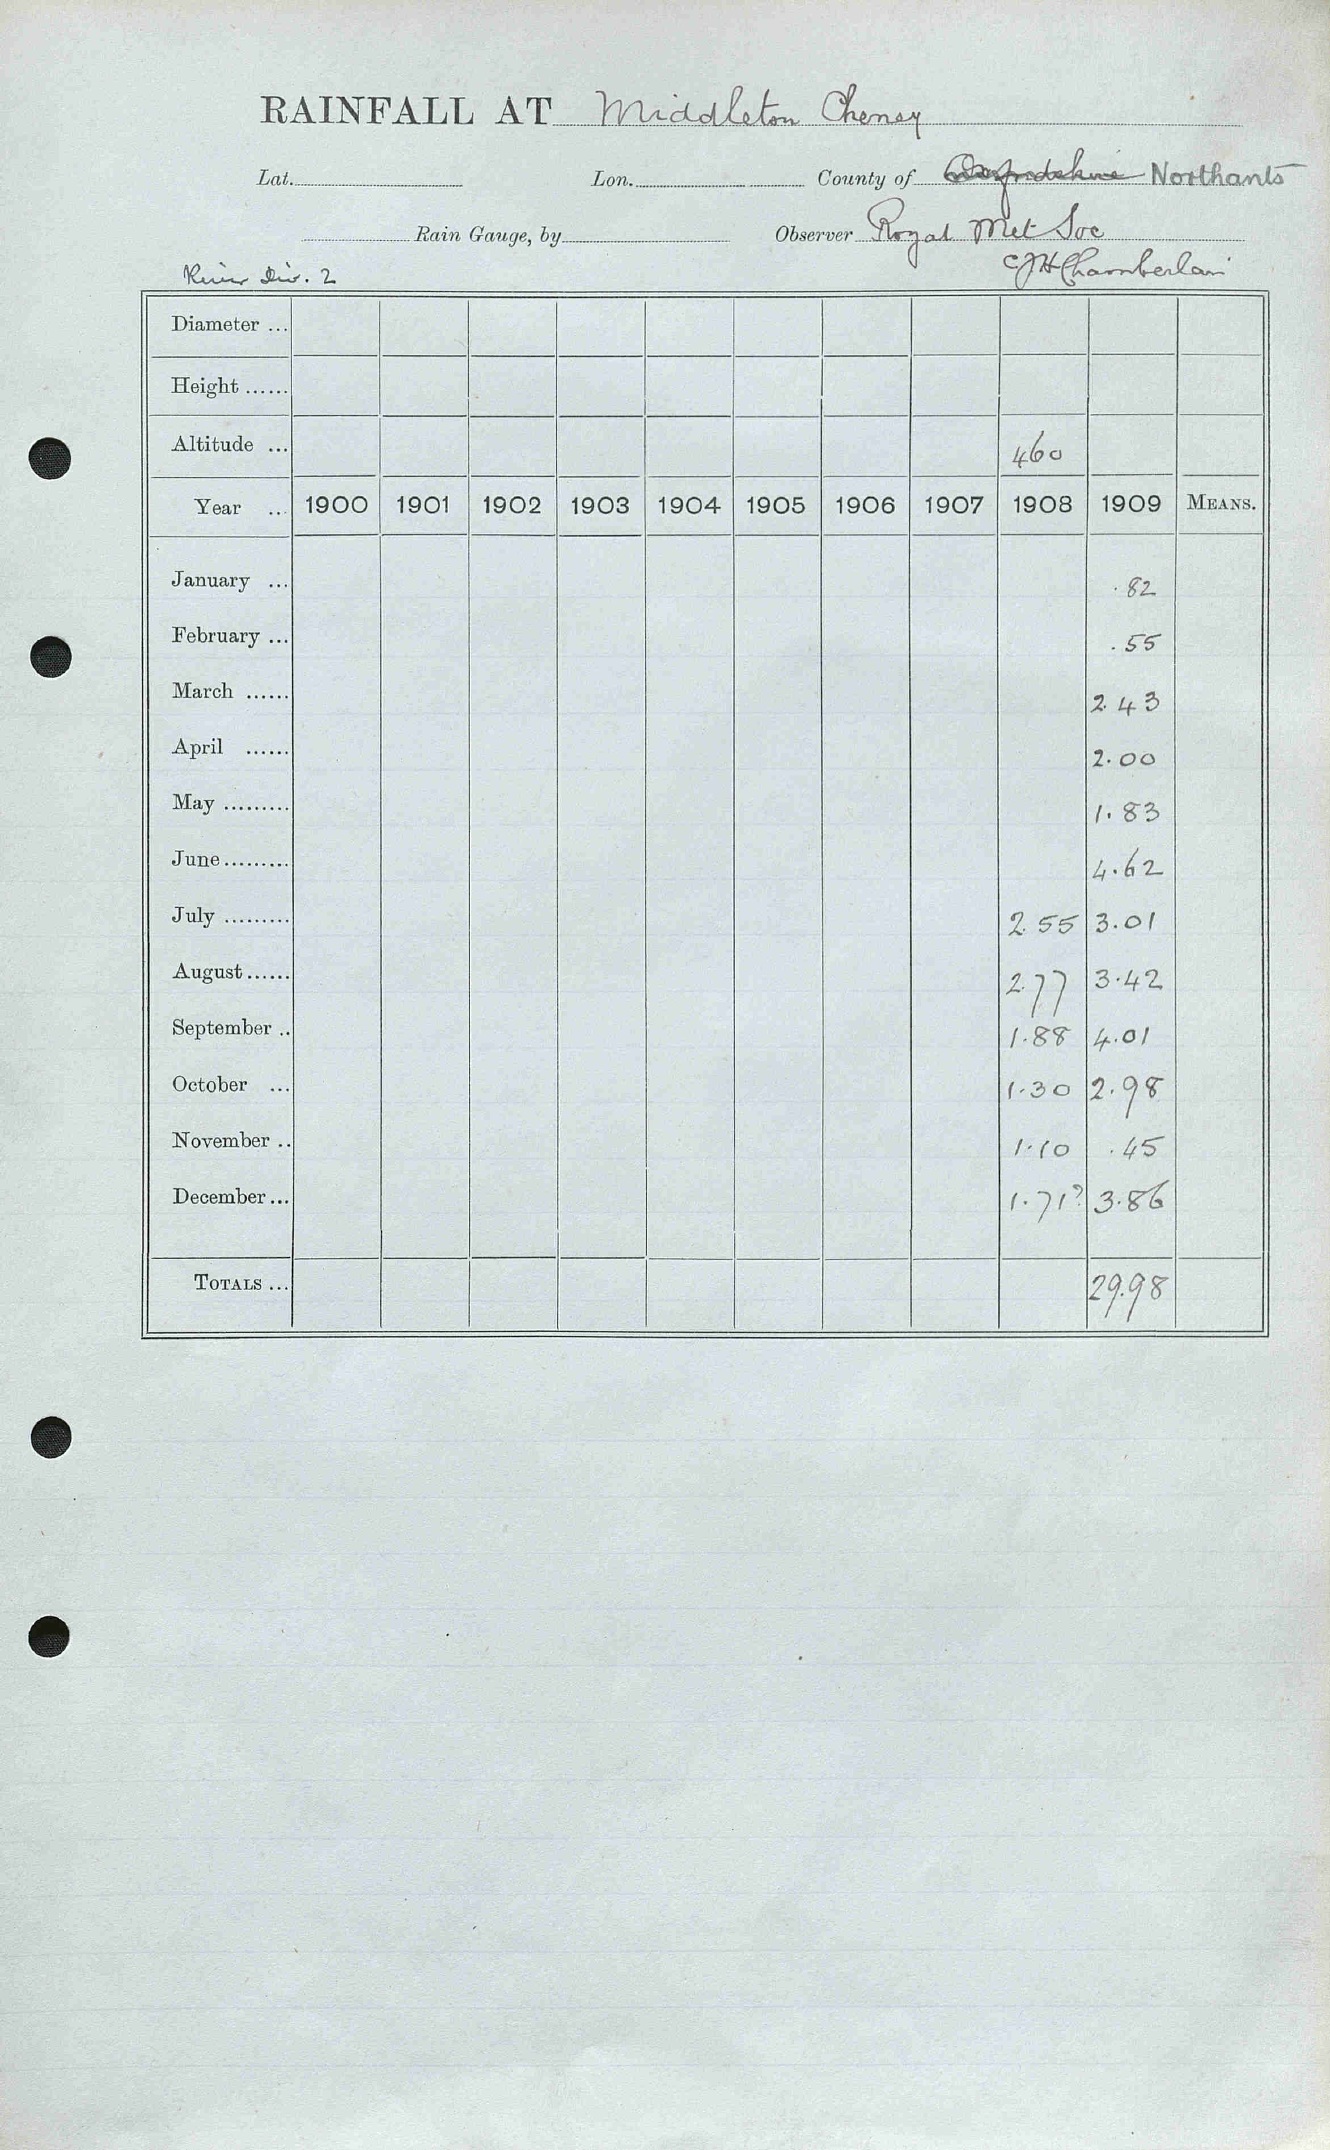 RAINFALL AT Middleton Cheney
Lat. Lon. County of Oxfordshire Northants
Rain Gauge, by Observer Royal Met Soc
River Div. 2 CJH Chamberlain
Diameter ...
Height ......
Altitude ... 460
Year ... 1900 1901 1902 1903 1904 1905 1906 1907 1908 1909 MEANS.
January ... .82
February ... .55
March ...... 2.43
April ...... 2.00
May ......... 1.83
June ......... 4.62
July ......... 2.55 3.01
August ...... 2.77 3.42
September .. 1.88 4.01
October ... 1.30 2.98
November .. 1.10 .45
December ... 1.71? 3.86
TOTALS ... 29.98